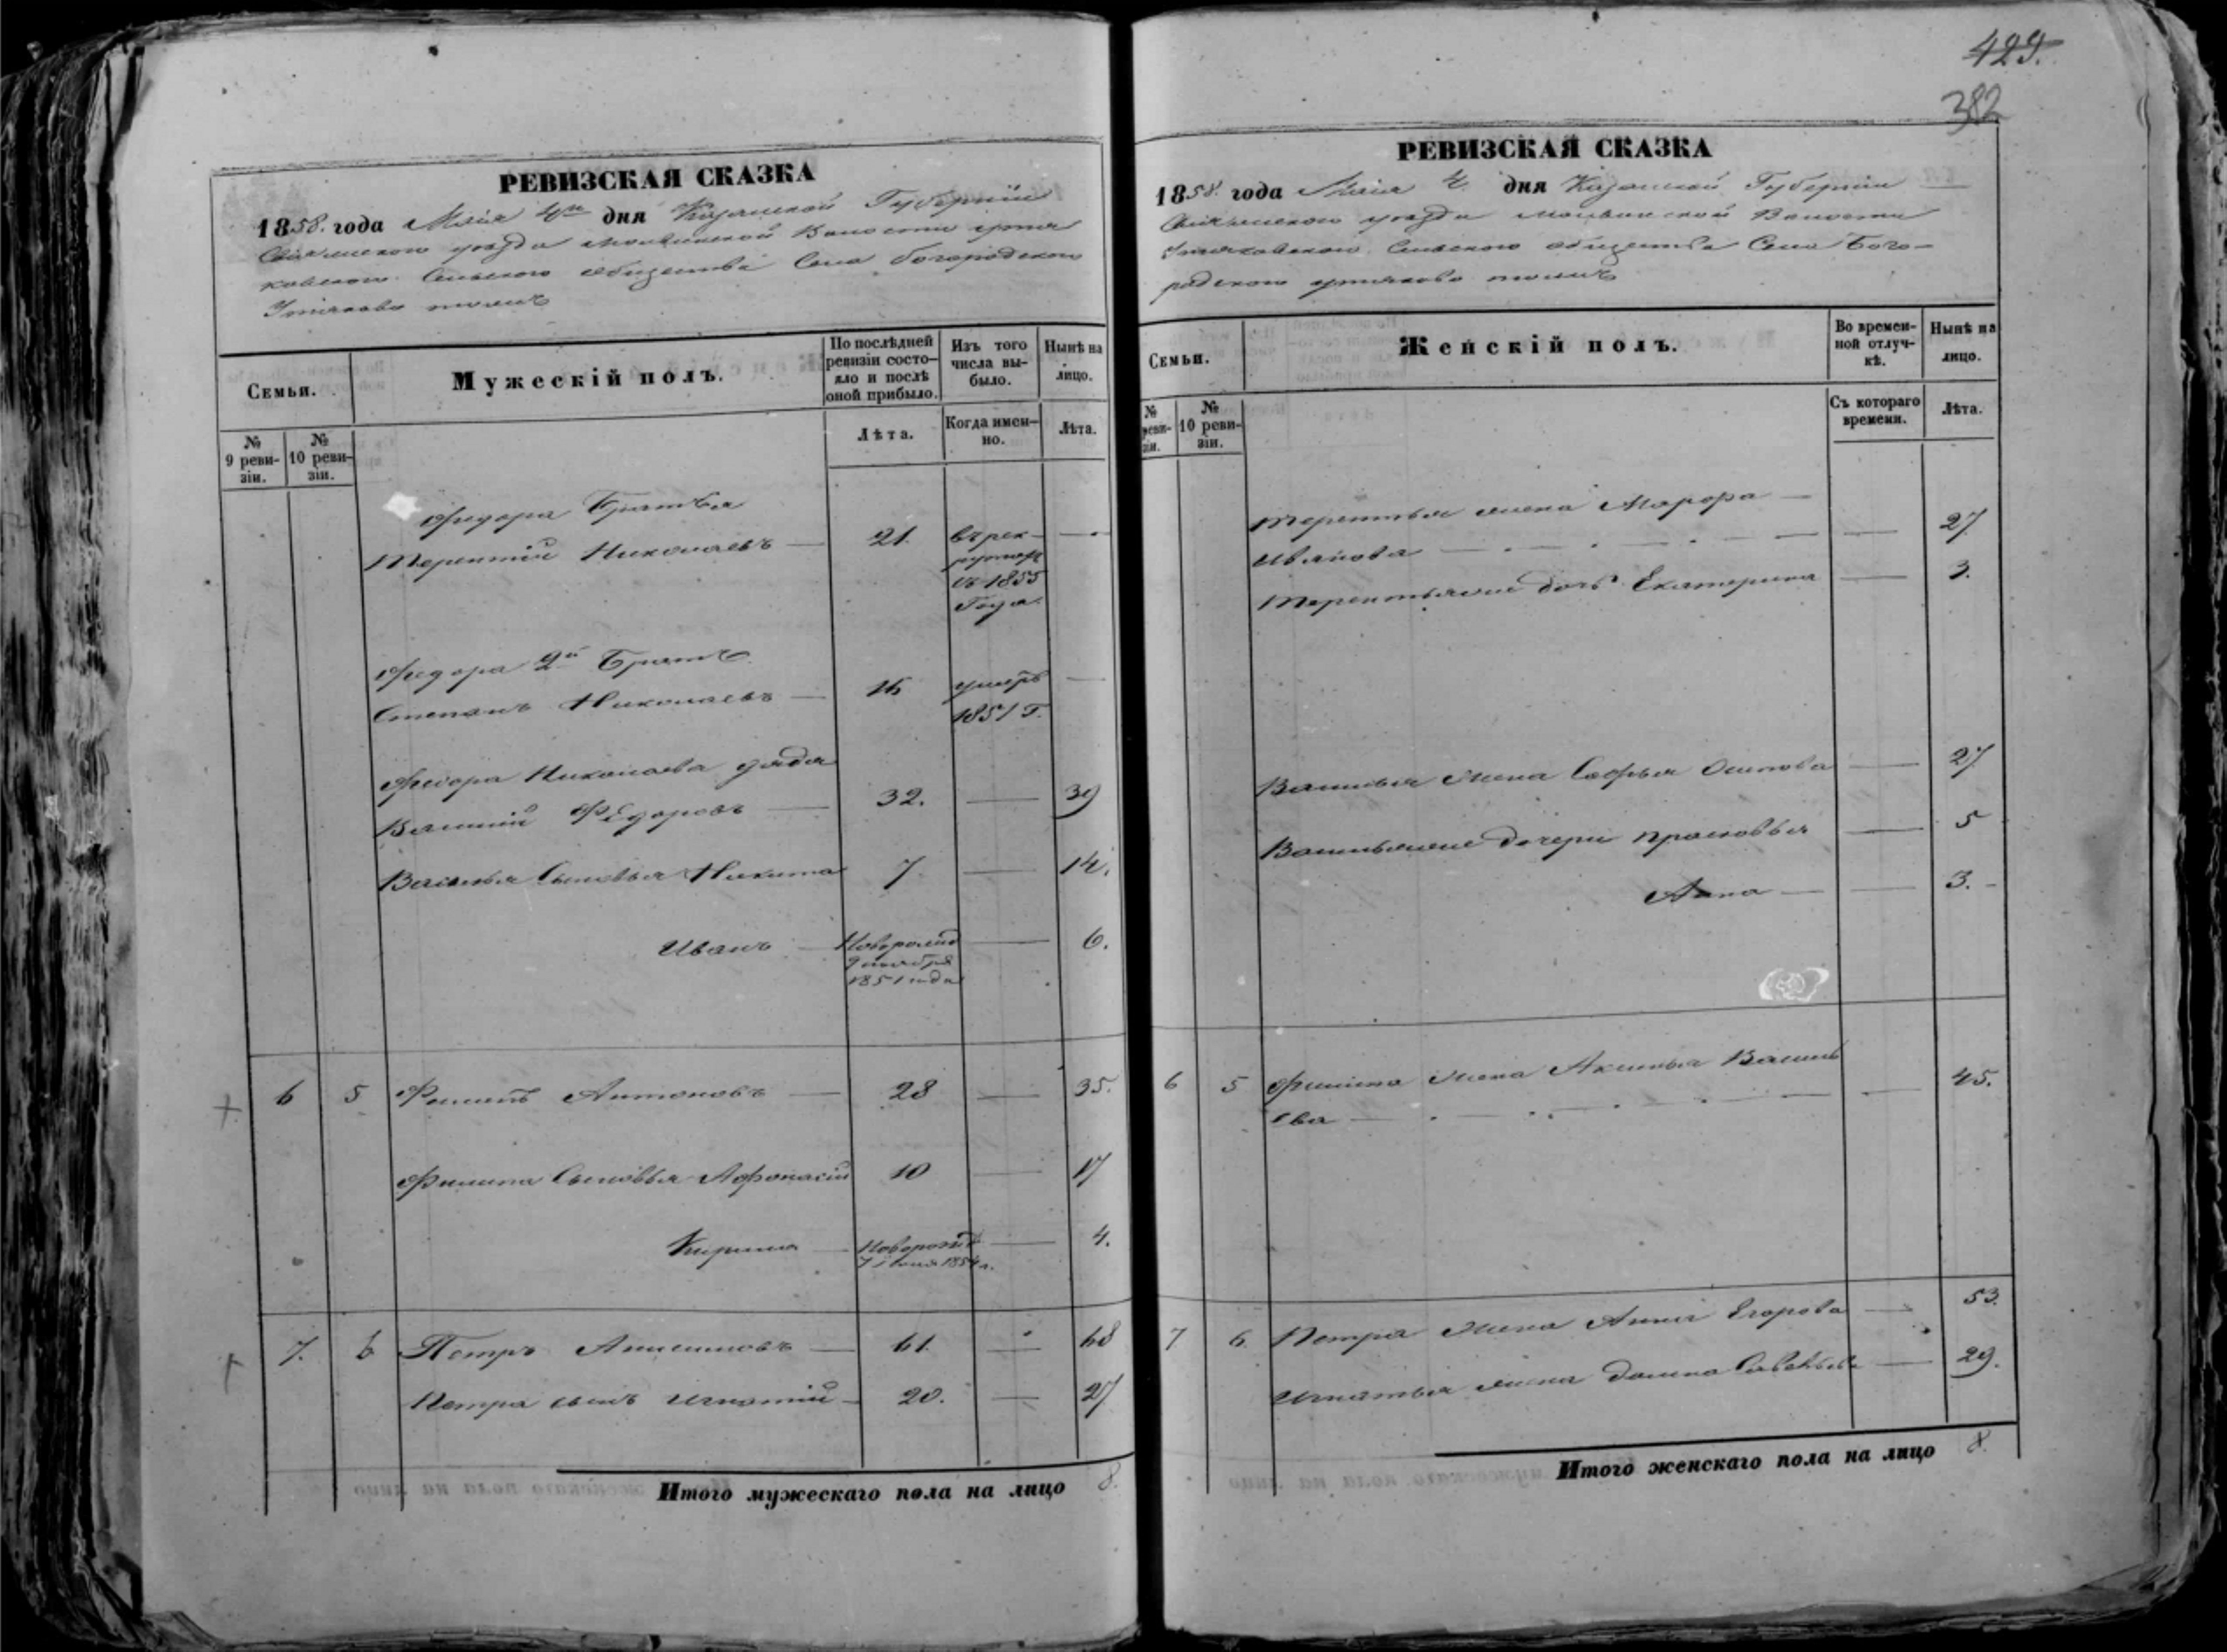 429.
382
РЕВИЗСКАЯ СКАЗКА
1858. года Маія 4го дня Казанской Губерніи
Свіяжскаго уѣзда Волости
Сельскаго общества Села Богородскаго
тожъ
Семьи.
Мужескій полъ.
По послѣдней ревизіи состояло и послѣ оной прибыло.
Изъ того числа выбыло.
Нынѣ на лицо.
№ 9 ревизіи.
№ 10 ревизіи.
Лѣта.
Когда именно.
Лѣта.
Федора Братья
Терентій Николаевъ — 21. въ рек-
руты
въ 1855
Года.
Федора 2й Братъ
Степанъ Николаевъ — 16 умеръ —
1851 г.
Федора Николаева дядя
Василій Федоровъ — 32. — 39
Василья Сыновья Никита 7 — 14.
Иванъ — Новорожд — 6.
9 ноября
1851 года
6 5 Филипъ Антоновъ — 28 — 35.
Филипа Сыновья Афонасій 10 — 17
Кирила — Новорожд — 4.
1854 г.
7. 6 Петръ Анисимовъ — 61. — 68
Петра сынъ Игнатій — 20. — 27
Итого мужескаго пола на лицо 8.
РЕВИЗСКАЯ СКАЗКА
1858. года Маія 4. дня Казанской Губерніи —
Свіяжскаго уѣзда Волости
Сельскаго общества Села Бого-
родскаго тожъ
Семьи.
Женскій полъ.
Во временной отлучкѣ.
Нынѣ на лицо.
№ ревизіи.
№ 10 ревизіи.
Съ котораго времени.
Лѣта.
Терентья жена Марфа —
Иванова — 27
Терентьяена дочь Екатерина — 3.
Василья жена Софья Осипова — 27
Васильяены дочери Прасковья — 5
Анна — 3.
6 5 Филипа жена Аксинья Василь
ева — 45.
7 6. Петра жена Анна Егорова — 53.
Игнатья жена Домна Савельева — 29.
Итого женскаго пола на лицо 8.